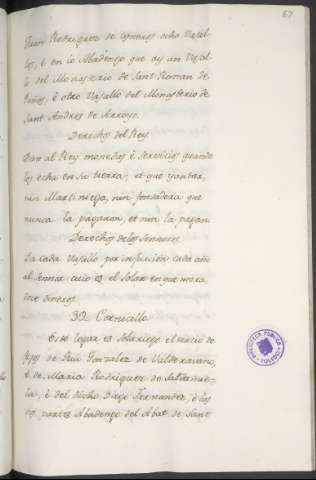 67
Juan Rodriguez de Cisneros ocho Vasal-
los, è en lo Abadengo que ay un Vasal-
lo del Monasterio de Sant Roman de
è otro Vasallo del Monesterio de
Sant Andres de Arroyo.
Derechos del Rey
Dan al Rey monedas è servicios quando
los echa en su tierra; et que yantar,
nin Martiniega, nin fonsadera que
nunca la pagaron, et nin la pagan.
Derechos de los Sennores
Da cada Vasallo por infurcion cada año
al Sennor cuio es el Solar en que mora,
doce dineros.
32 Cornecillo
Este logar es Solariego el tercio de
fijos de Rui Gonzalez de Valderavano,
è de Maria Rodriguez
è del dicho Diego Fernandez, è los
dos partes Abadengo del Abat de Sant
BIBLIOTECA PUBLICA
TOLEDO